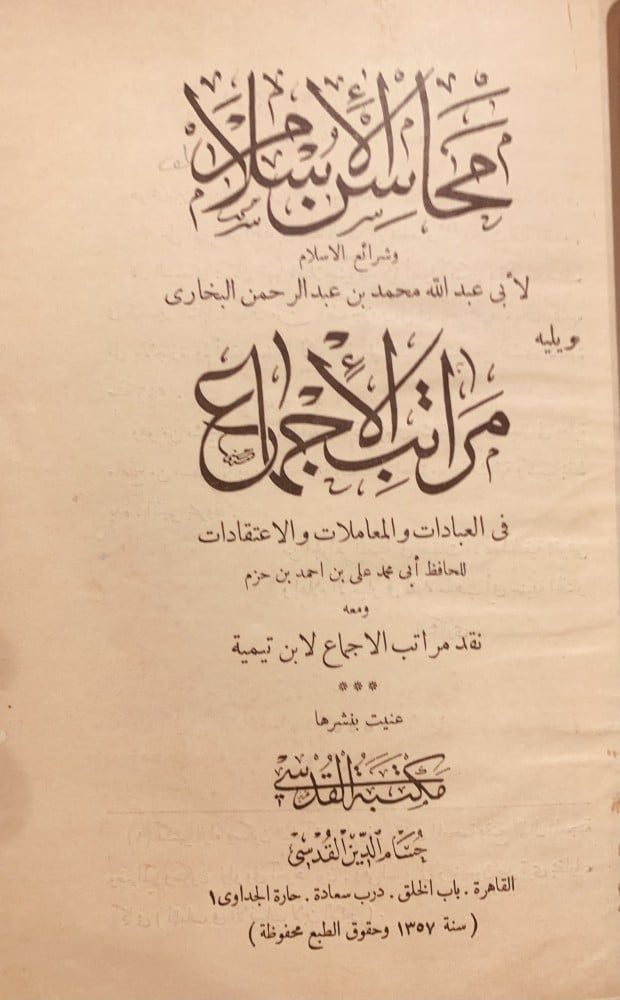 محاسن الإسلام
وشرائع الاسلام
لأبى عبد الله محمد بن عبد الرحمن البخارى
ويليه
مراتب الإجماع
فى العبادات والمعاملات والاعتقادات
للحافظ أبى محمد على بن احمد بن حزم
ومعه
نقد مراتب الاجماع لابن تيمية
***
عنيت بنشرها
مكتبة القدسي
حسام الدين القدسي
القاهرة . باب الخلق . درب سعادة . حارة الجداوى ١
( سنة ١٣٥٧ وحقوق الطبع محفوظة )